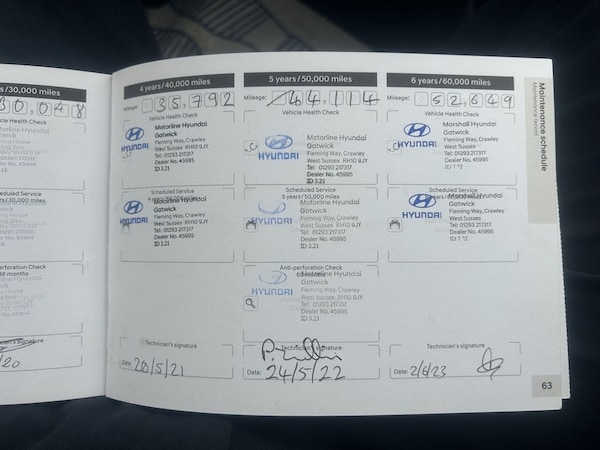 s/30,000 miles
30,048
icle Health Check
4 years/40,000 miles
Mileage: 35,792
Vehicle Health Check
HYUNDAI
Motorline Hyundai
Gatwick
Fleming Way, Crawley
West Sussex RH10 9JY
Tel: 01293 217317
Dealer No. 45995
ID 3.21
Scheduled Service
HYUNDAI
Motorline Hyundai
Gatwick
Fleming Way, Crawley
West Sussex RH10 9JY
Tel: 01293 217317
Dealer No. 45995
ID 3.21
Technician's signature
Date: 20/5/21
5 years/50,000 miles
Mileage: 44,114
Vehicle Health Check
HYUNDAI
Motorline Hyundai
Gatwick
Fleming Way, Crawley
West Sussex RH10 9JY
Tel: 01293 217317
Dealer No. 45995
ID 3.21
Scheduled Service
5 years/50,000 miles
HYUNDAI
Motorline Hyundai
Gatwick
Fleming Way, Crawley
West Sussex RH10 9JY
Tel: 01293 217317
Dealer No. 45995
ID 3.21
Anti-perforation Check
HYUNDAI
Motorline Hyundai
Gatwick
Fleming Way, Crawley
West Sussex RH10 9JY
Tel: 01293 217317
Dealer No. 45995
ID 3.21
Technician's signature
Date: 24/5/22
6 years/60,000 miles
Mileage: 52,649
Vehicle Health Check
HYUNDAI
Marshall Hyundai
Gatwick
Fleming Way, Crawley
West Sussex
Tel: 01293 217317
Dealer No. 45995
Scheduled Service
HYUNDAI
Marshall Hyundai
Gatwick
Fleming Way, Crawley
West Sussex
Tel: 01293 217317
Dealer No. 45995
Technician's signature
Date: 2/6/23
Maintenance schedule
Maintenance record
63